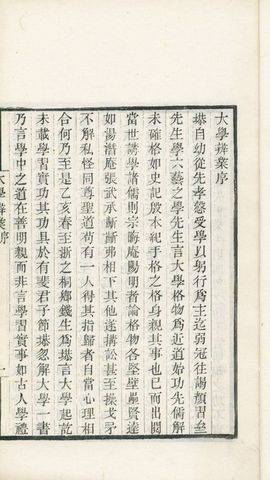 大學辨業序
塨自幼從先孝慤受學以躬行爲主迄弱冠往謁顏習齋
先生學六藝之學先生言大學格物爲近道始功先儒解
未確格如史記殷本紀手格之格身親其事也已而出閱
當世講學諸儒則宗晦庵陽明者論格物各堅壁壘賢達
如湯潛庵張武承齗齗弗相下其他逐講訟甚至操戈矛
不解私怪同尊聖道苟有一人得其指歸者自當心理相
合何乃至是乙亥春至浙之桐鄉錢生爲塨言大學起訖
未載學習實功其功具於有斐君子節塨忽解大學一書
乃言學中之道在善明親而非言學習實事如古人學禮
大學辨業序
一